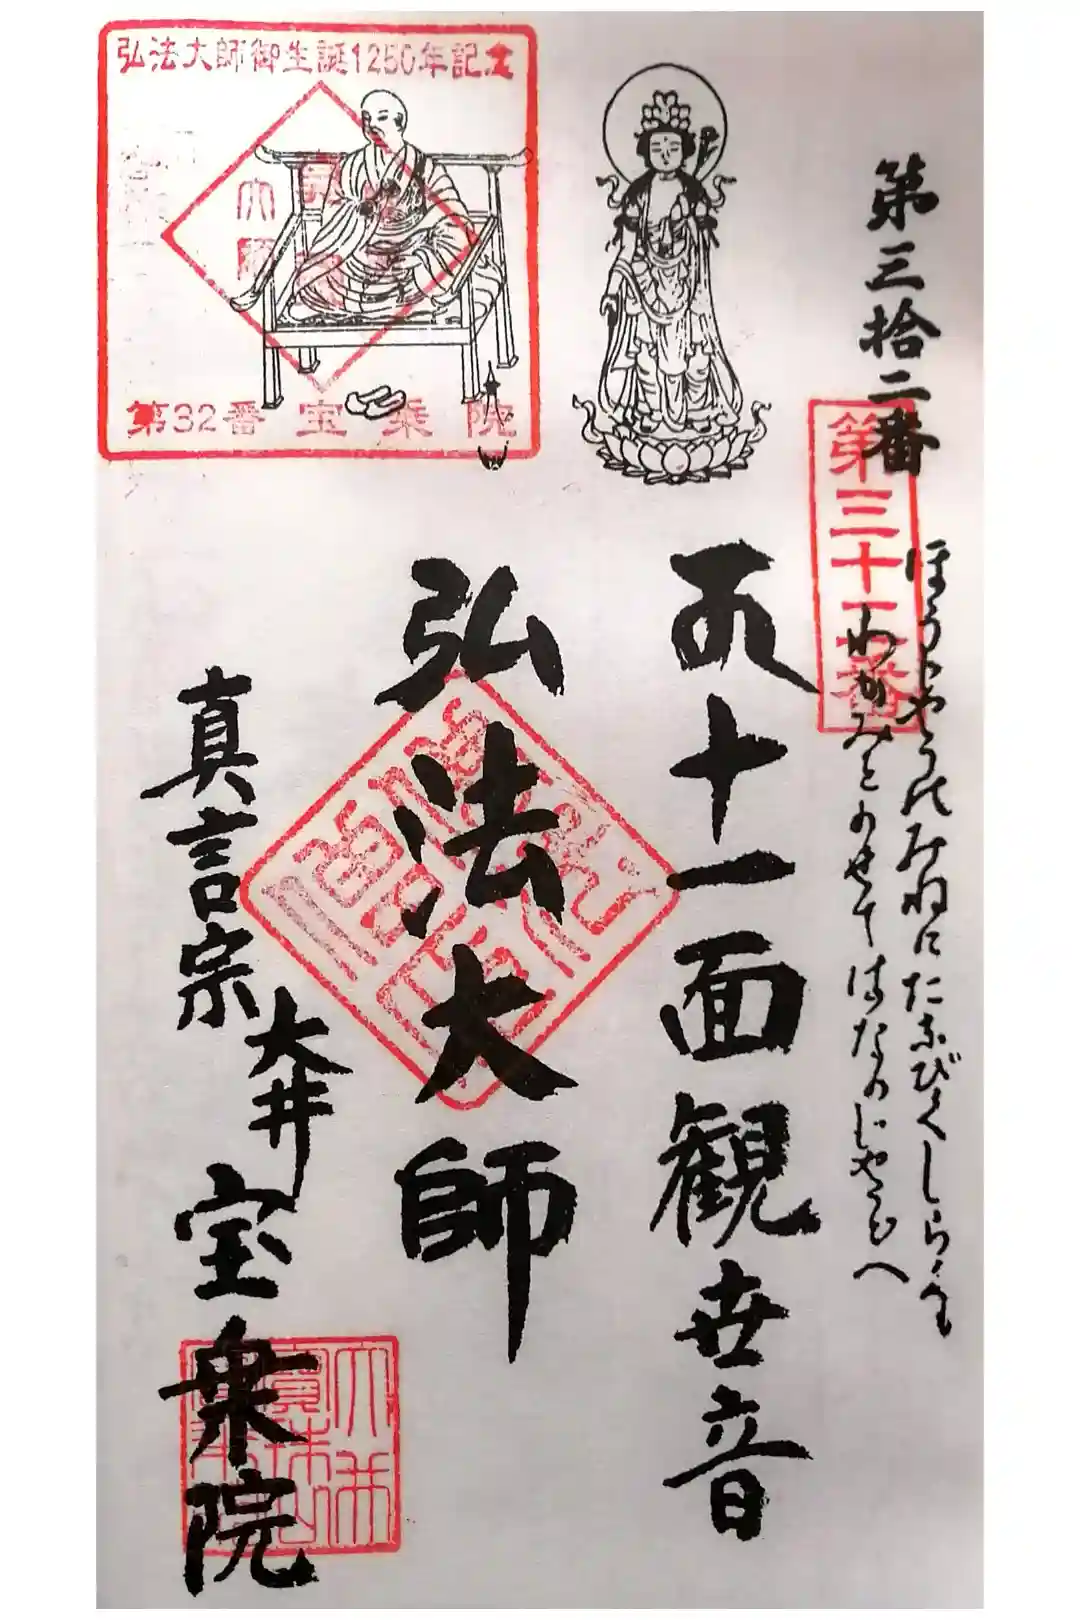 第三拾二番
第三十二番
ほうしやうのみねにたなびくしらくも
わがみをのせてはなのじやうどへ
十一面観世音
弘法大師
真言宗
大井
宝乗院
弘法大師御生誕1250年記念
第32番 宝乗院